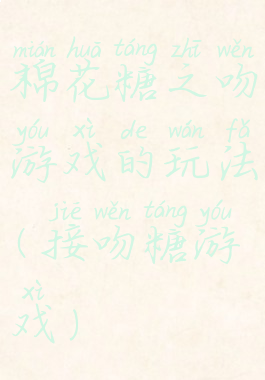 mián huā táng zhī wěn
棉花糖之吻
yóu xì de wán fǎ
游戏的玩法
jiē wěn táng yóu
(接吻糖游
xì
戏)